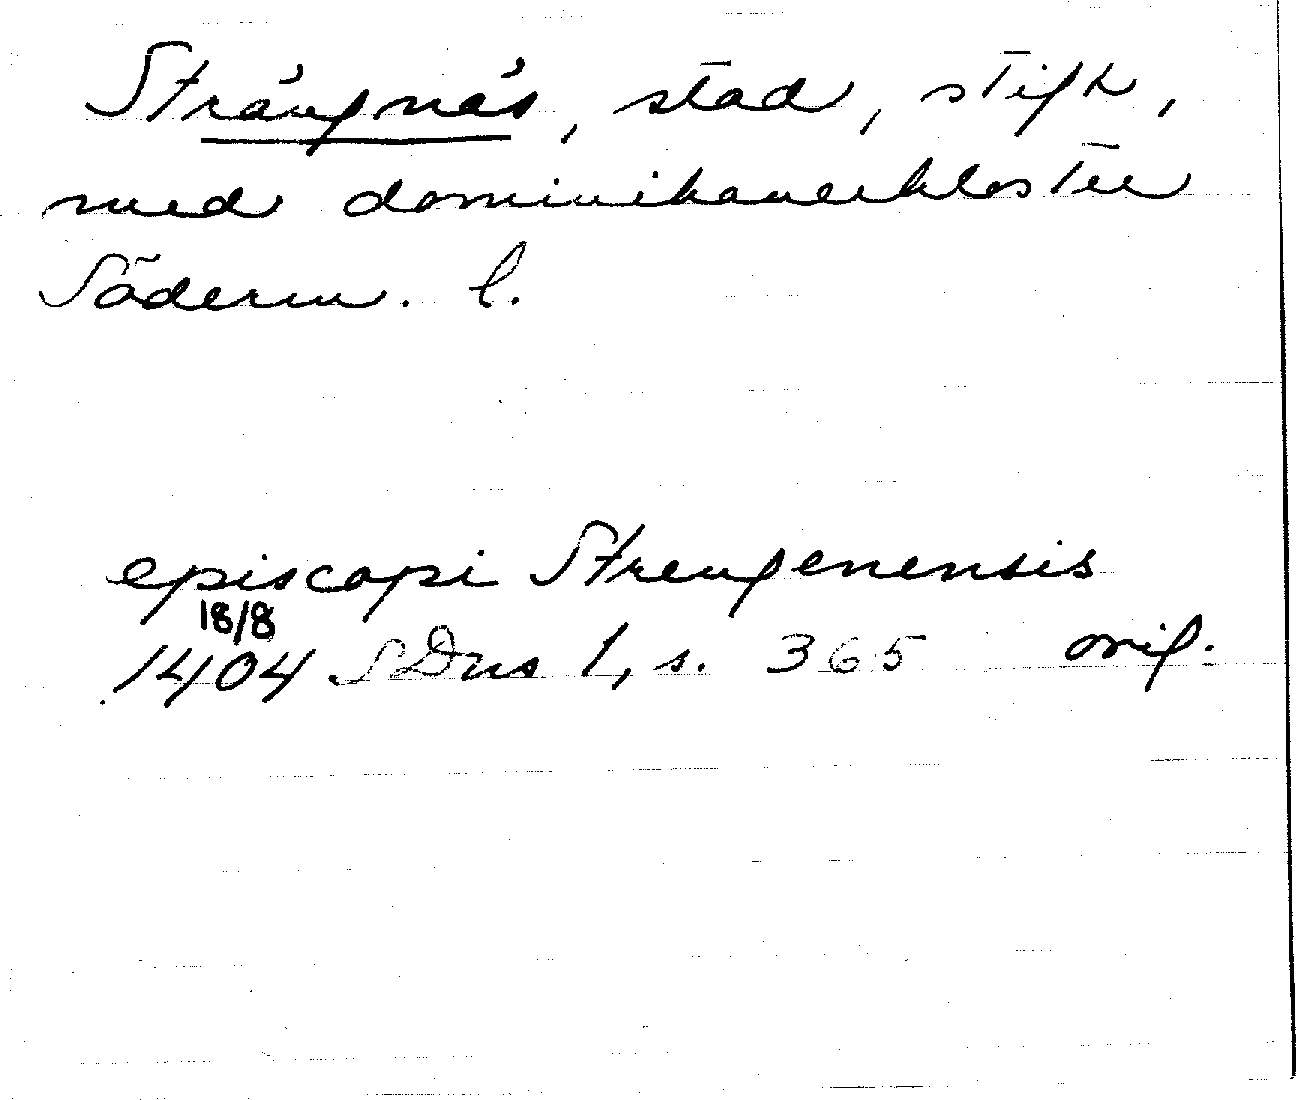 Strängnäs, stad, stift,
med dominikanerkloster
Söderm. l.
episcopi Strengenensis
18/8
1404 SDns 1, s. 365 orig.